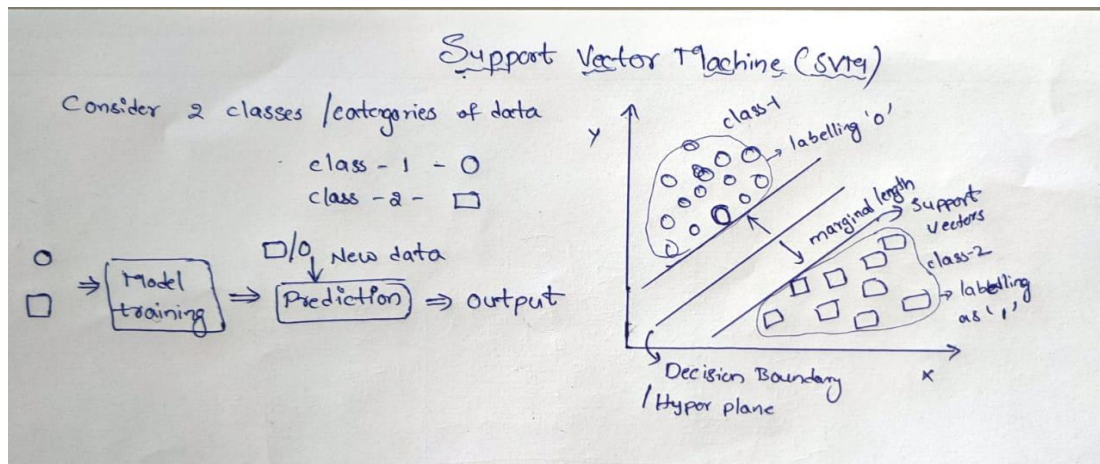 Support Vector Machine (SVM)
Consider 2 classes /categories of data
class - 1 - O
class - 2 - □
□/O New data
Model
training
⇒ Prediction ⇒ output
Y
class-1
labelling 'o'
marginal length
Support
Vectors
class-2
labelling
as '1'
X
Decision Boundary
/ Hyper plane